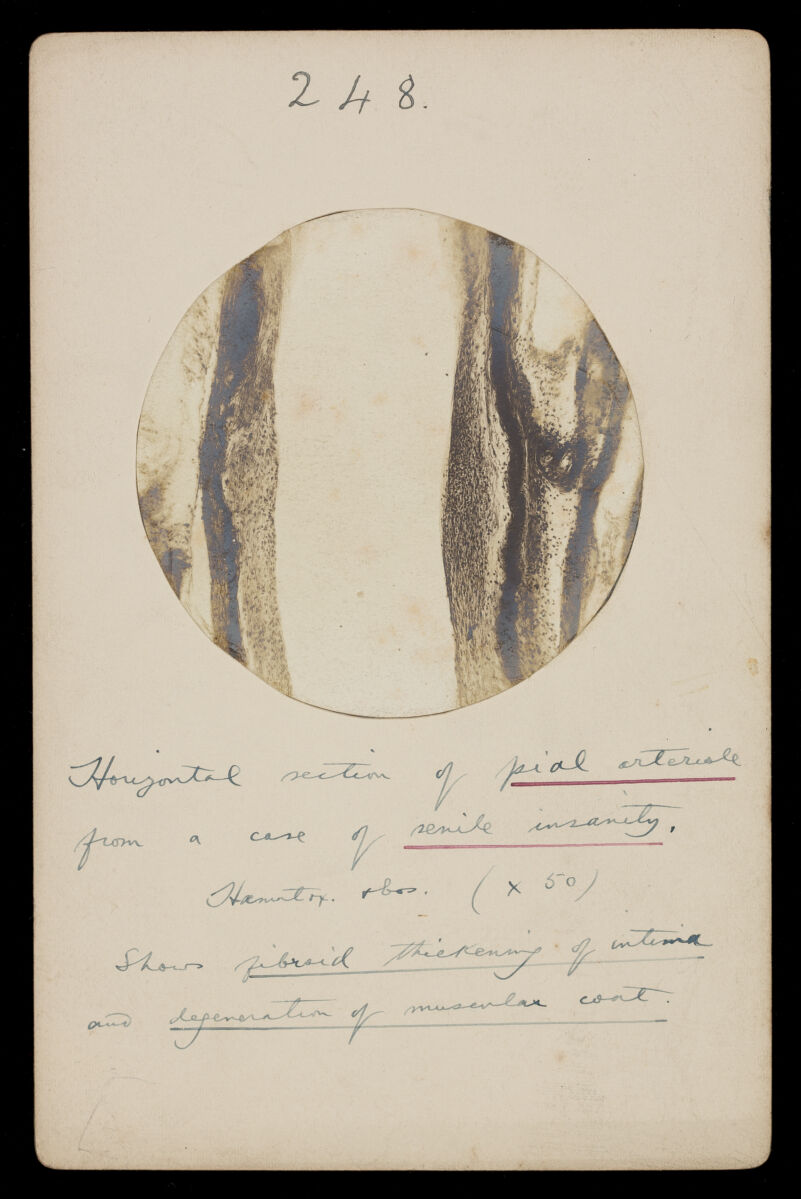 248.
Horizontal section of pial arteriole
from a case of senile insanity.
Hæmatox. + eos. (x 50)
Shows fibroid thickening of intima
and degeneration of muscular coat.